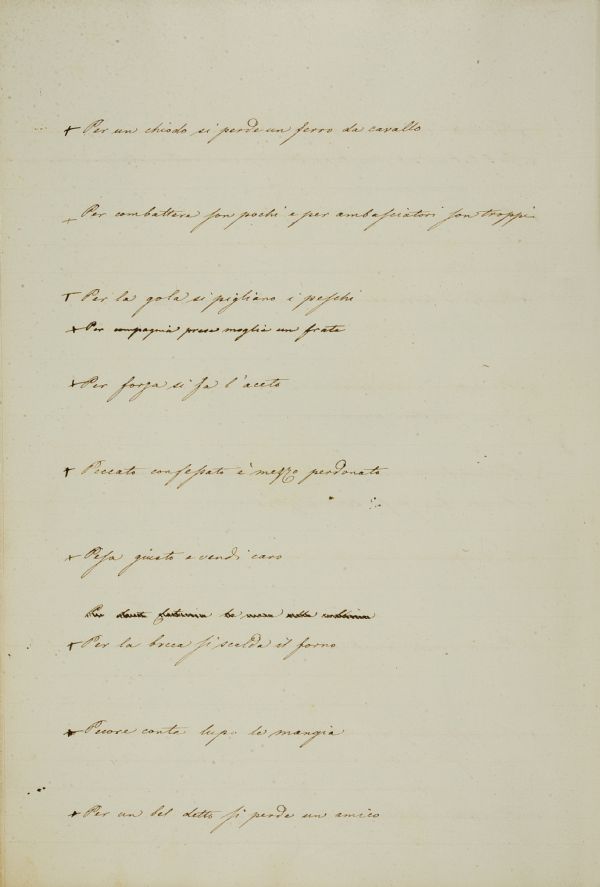 + Per un chiodo si perde un ferro da cavallo
+ Per combattere son pochi e per ambasciatori son troppi
+ Per la gola si pigliano i peschi
+ Per compagnia prese moglie un frate
+ Per forza si fa l'aceto
+ Peccato confessato è mezzo perdonato
+ Pesa giusto e vendi caro
Per
+ Per la bocca si scalda il forno
+ Pecore conta lupo le mangia
+ Per un bel detto si perde un amico